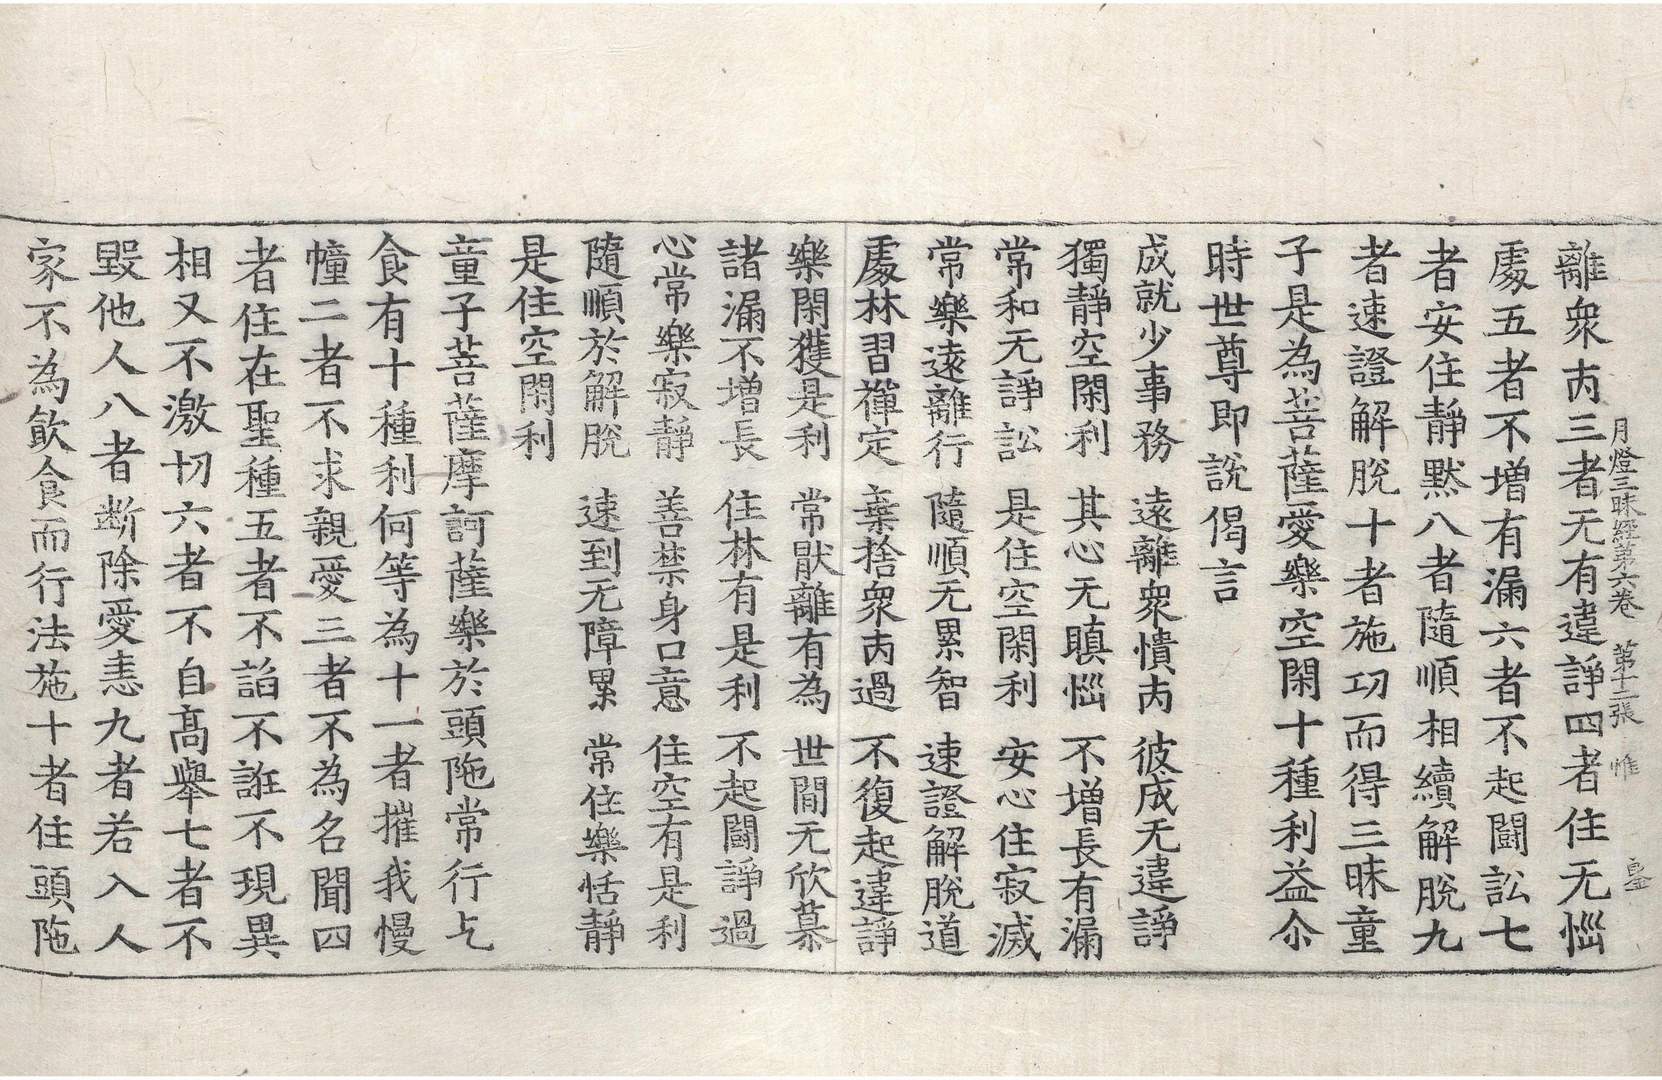 月燈三昧經第六卷　第十二張　惟
離衆㐫三者无有違諍四者住无惱
處五者不增有漏六者不起鬪訟七
者安住靜默八者隨順相續解脫九
者速證解脫十者施㓛而得三昧童
子是為菩薩愛樂空閑十種利益尒
時世尊即說偈言
成就少事務　遠離衆憒㐫　彼成无違諍
獨靜空閑利　其心无瞋惱　不增長有漏
常和无諍訟　是住空閑利　安心住寂滅
常樂遠離行　隨順无累智　速證解脫道
處林習禪定　棄捨衆㐫過　不復起違諍
樂閑獲是利　常猒離有為　世間无欣慕
諸漏不增長　住林有是利　不起鬪諍過
心常樂寂靜　善禁身口意　住空有是利
隨順於解脫　速到无障累　常住樂恬靜
是住空閑利
童子菩薩摩訶薩樂於頭陁常行乞
食有十種利何等為十一者摧我慢
幢二者不求親愛三者不為名聞四
者住在聖種五者不諂不誑不現異
相又不激切六者不自高舉七者不
毀他人八者断除愛恚九者若入人
家不為飲食而行法施十者住頭陁